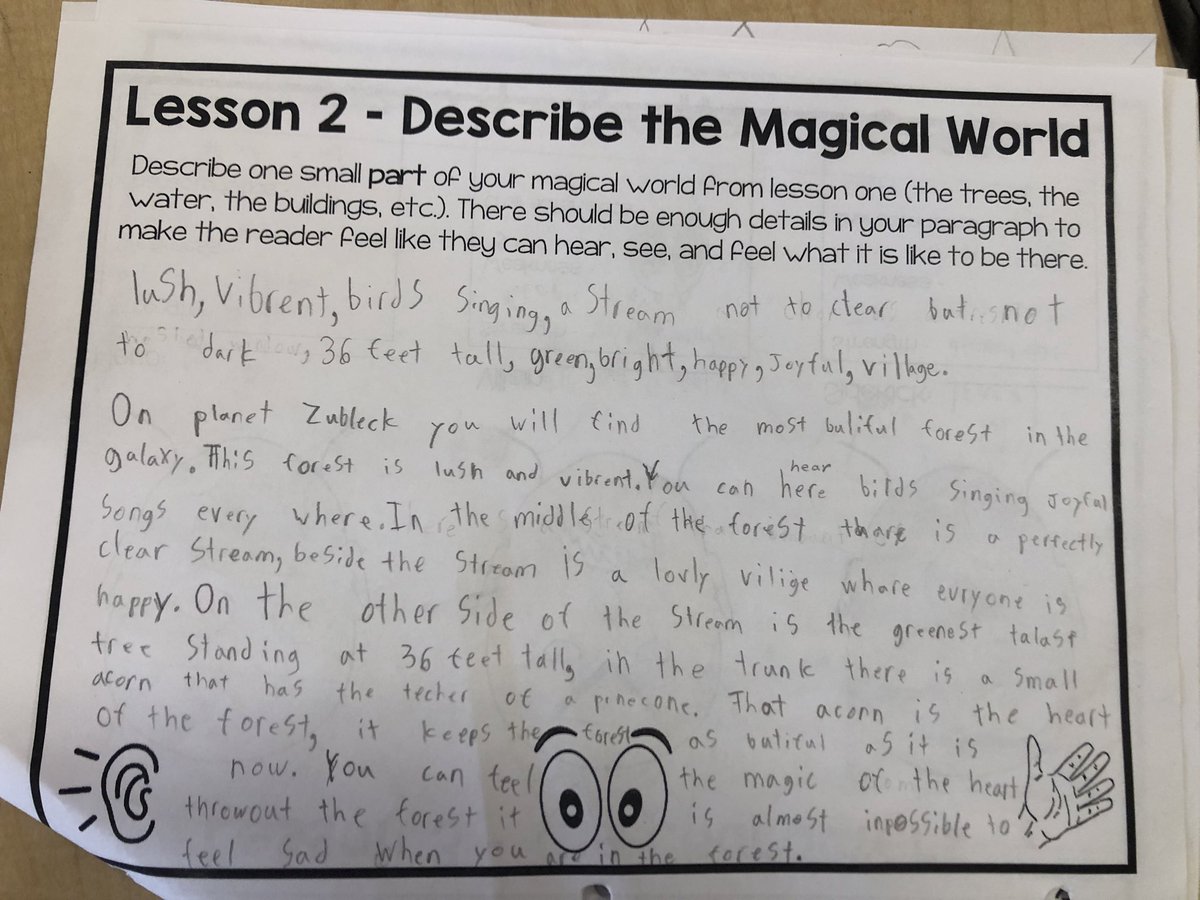 Lesson 2 - Describe the Magical World
Describe one small part of your magical world from lesson one (the trees, the
water, the buildings, etc.). There should be enough details in your paragraph to
make the reader feel like they can hear, see, and feel what it is like to be there.
lush, vibrent, birds singing, a stream not to clear but not
to dark, 36 feet tall, green, bright, happy, Joyful, village.
On planet Zubleck you will find the most buliful forest in the
galaxy. This forest is lush and vibrent. You can here birds singing Joyful
hear
songs every where. In the middle of the forest thare is a perfectly
clear stream, beside the stream is a lovly vilige whare evryone is
happy. On the other side of the stream is the greenest talast
tree standing at 36 feet tall, in the trunk there is a small
acorn that has the techer of a pinecone. That acorn is the heart
of the forest, it keeps the forest as butiful as it is
now. You can feel the magic of the heart
throwout the forest it is almost inpossible to
feel sad when you are in the forest.